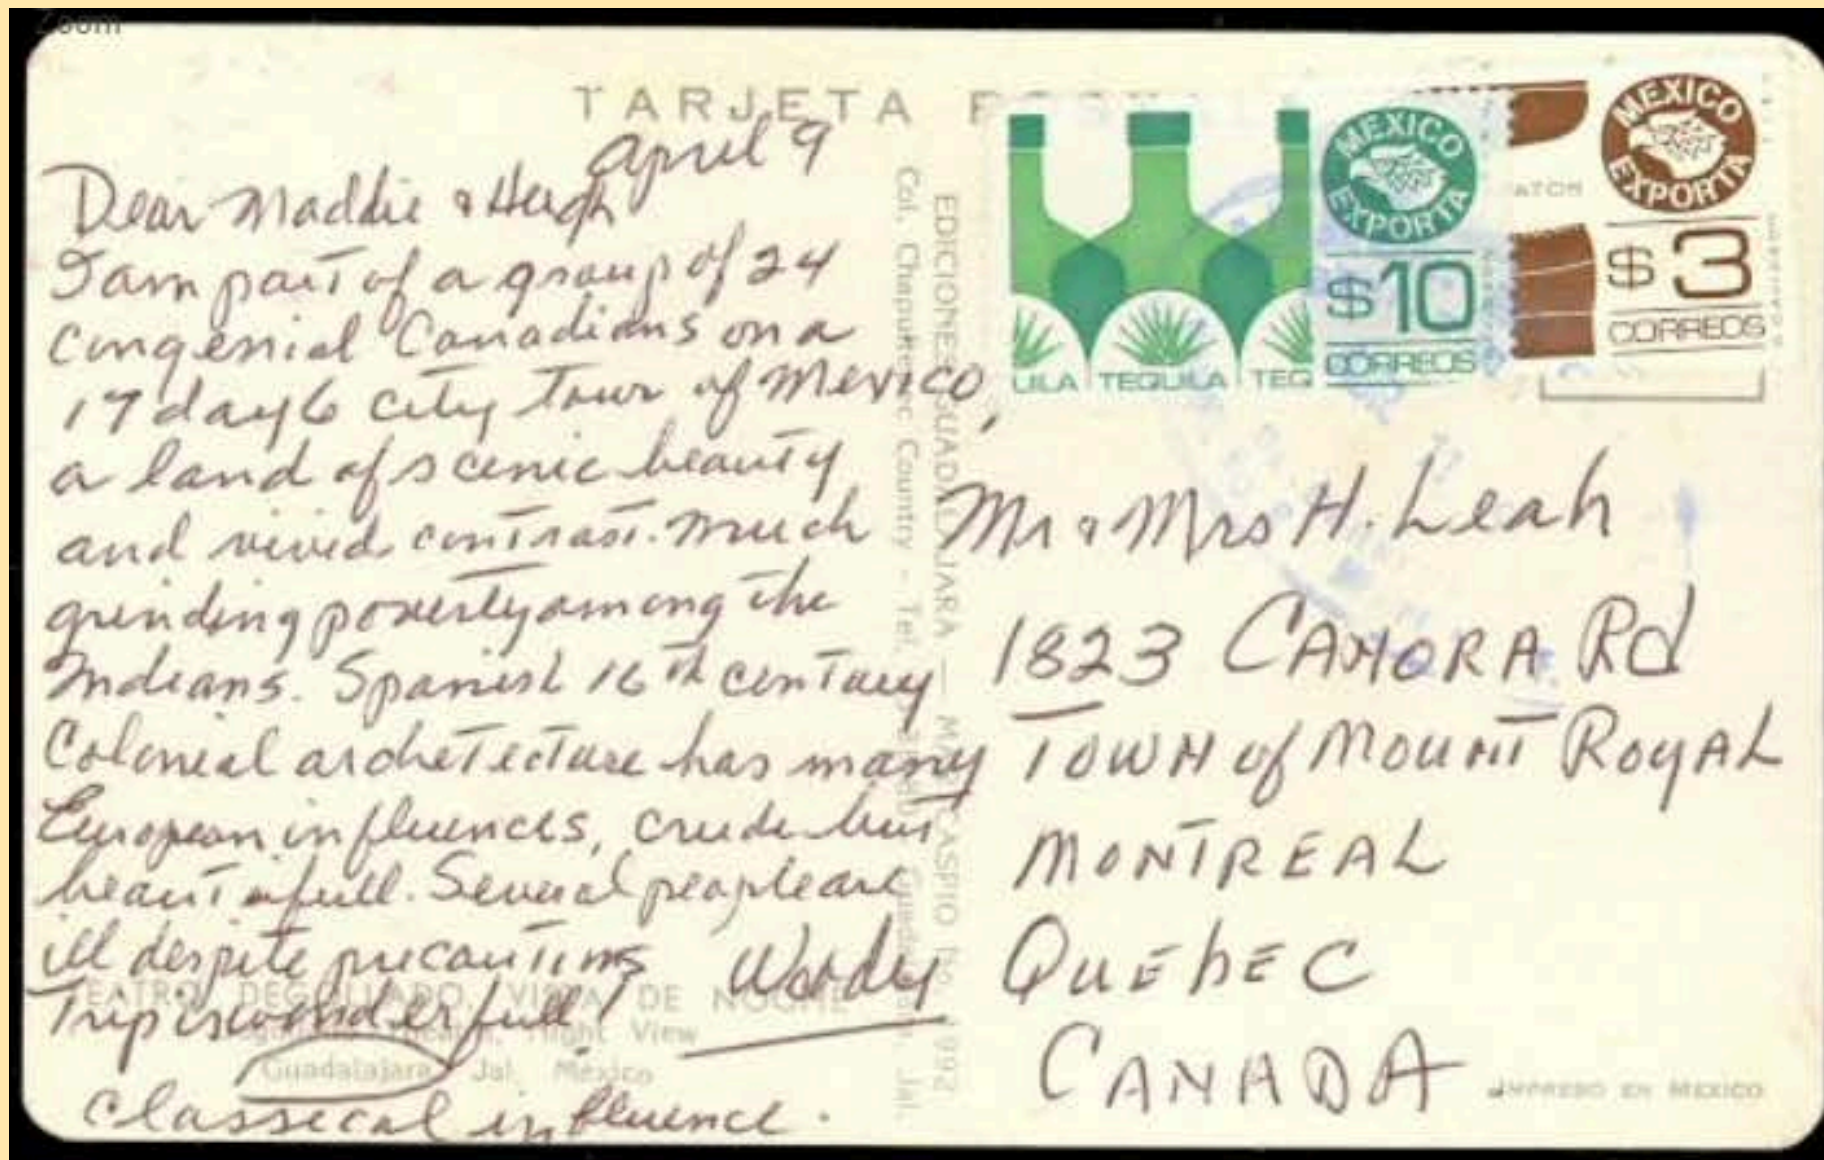 Zoom
TARJETA
April 9
Dear Maddie & Hugh
I am part of a group of 24
congenial Canadians on a
17 day 6 city tour of Mexico,
a land of scenic beauty
and vivid contrast. Much
grinding poverty among the
Indians. Spanish 16th century
Colonial archetecture has many
European influences, crude but
beautifull. Several people are
ill despite precautions
Trip is wonderfull!
Woody
TEATRO DEGOLLADO, VISTA DE NOCHE
Night View
Guadalajara, Jal. México
classical influence.
EDICIONES GUADALAJARA — MAR CASPIO No. 1992
Col. Chapultepec Country - Tel.
Jal.
MEXICO
EXPORTA
$10
CORREOS
UILA TEQUILA TEQ
MEXICO
EXPORTA
$3
CORREOS
Mr & Mrs H. Leah
1823 CANORA Rd
TOWN of MOUNT ROYAL
MONTREAL
QUEbEC
CANADA
IMPRESO EN MEXICO